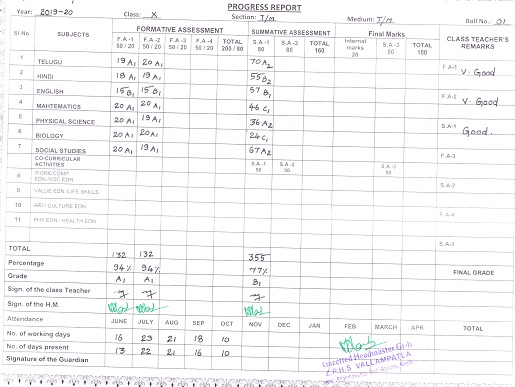 PROGRESS REPORT
Year: 2019-20 Class: X Section: T/M Medium: T/M Roll No.: 01
Sl.No SUBJECTS FORMATIVE ASSESSMENT SUMMATIVE ASSESSMENT Final Marks CLASS TEACHER'S REMARKS
F.A -1 50 / 20 F.A -2 50 / 20 F.A -3 50 / 20 F.A -4 50 / 20 TOTAL 200 / 80 S.A -1 80 S.A -2 80 TOTAL 160 Internal marks 20 S.A -3 80 TOTAL 100
1 TELUGU 19 A1 20 A1 70 A2 F.A-1 V. Good
2 HINDI 18 A1 19 A1 55 B2
3 ENGLISH 15 B1 15 B1 57 B1 F.A-2 V. Good
4 MAHTEMATICS 20 A1 20 A1 46 C1
5 PHYSICAL SCIENCE 20 A1 19 A1 36 A2 S.A-1 Good.
6 BIOLOGY 20 A1 20 A1 24 C1
7 SOCIAL STUDIES 20 A1 19 A1 67 A2 F.A-3
CO-CURRICULAR ACTIVITIES S.A -1 50 S.A -2 50 S.A -3 50
8 WORK/COMP. EDN./VOC EDN. S.A-2
9 VALUE EDN / LIFE SKILLS
10 ART / CULTURE EDN F.A-4
11 PHY EDN / HEALTH EDN
S.A-3
TOTAL 132 132 355
Percentage 94% 94% 77% FINAL GRADE
Grade A1 A1 B1
Sign. of the class Teacher
Sign. of the H.M.
Attendance JUNE JULY AUG SEP OCT NOV DEC JAN FEB MARCH APR TOTAL
No. of working days 16 23 21 18 10
No. of days present 13 22 21 16 10
Signature of the Guardian
Gazetted Headmaster Gr-II
Z.P.H.S VALLAMPATLA